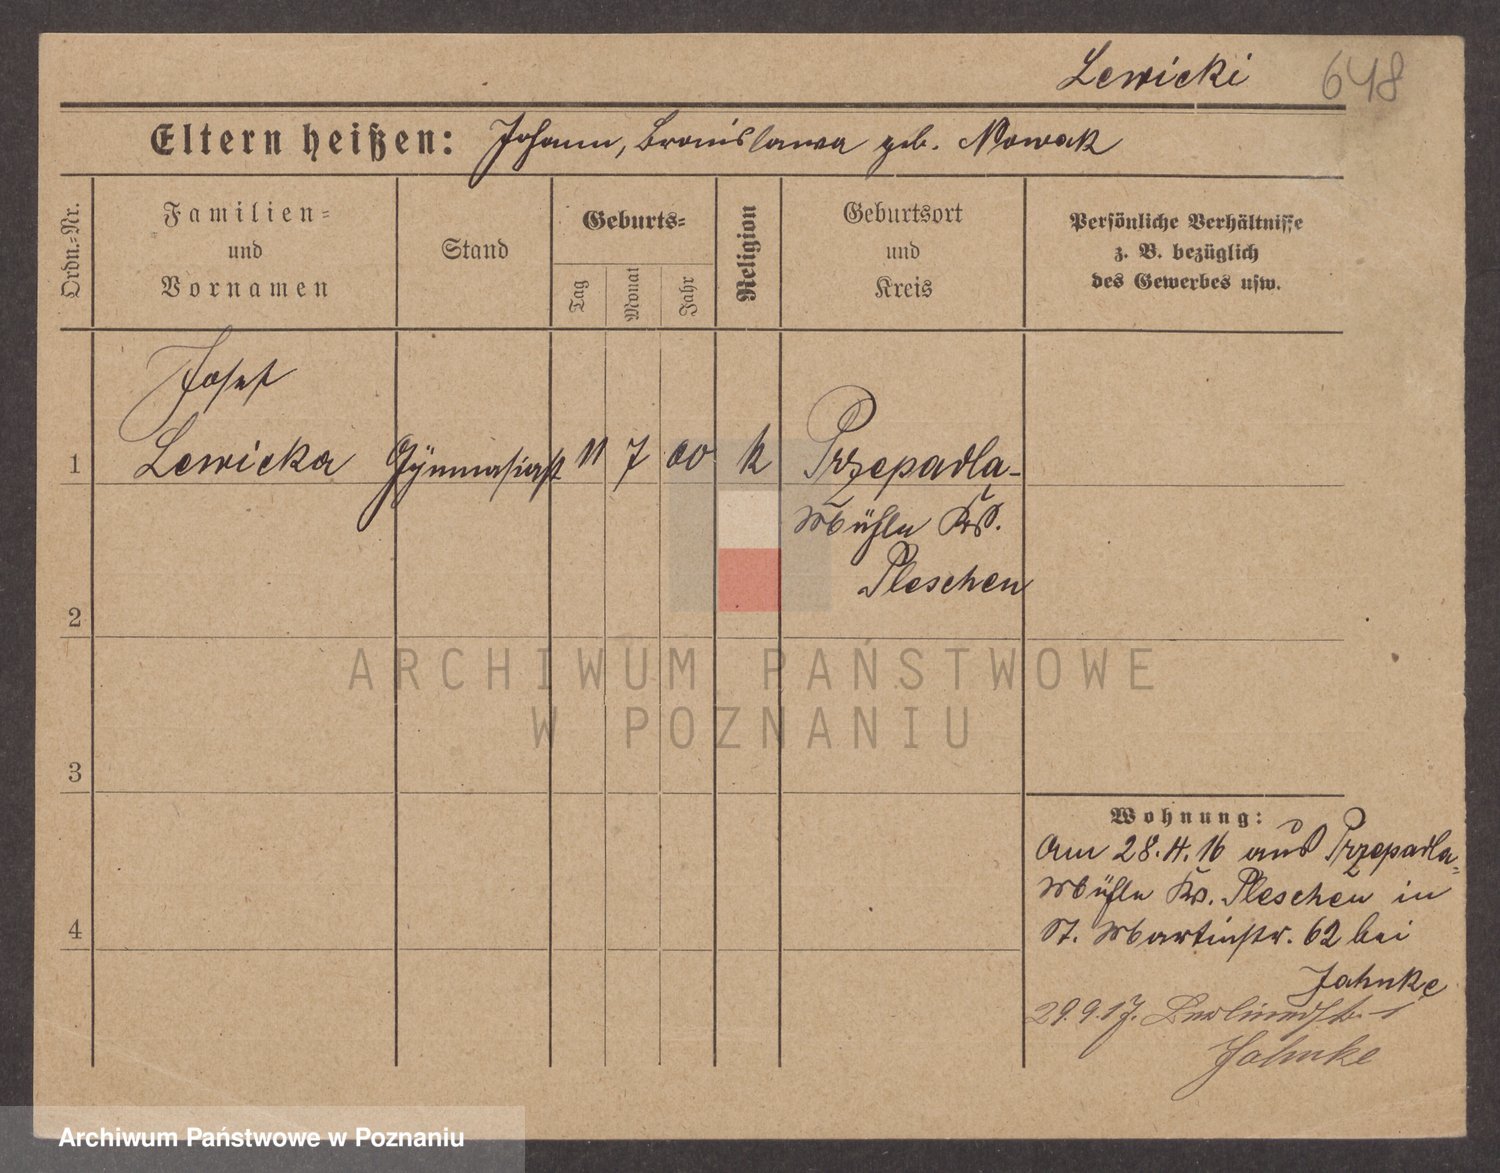 Lewicki 648
Eltern heißen: Johann, Bronislawa geb. Nowak
Ordn.-Nr.
Familien-
und
Vornamen
Stand
Geburts-
Tag
Monat
Jahr
Religion
Geburtsort
und
Kreis
Persönliche Verhältnisse
z. B. bezüglich
des Gewerbes usw.
Josef
1 Lewicka Gymnasiast 11 7 00 k Przepadla-
Mühle Krs.
Pleschen
2
ARCHIWUM PAŃSTWOWE
W POZNANIU
3
Wohnung:
Am 28.4.16 aus Przepadla-
Mühle Krs. Pleschen in
4
St. Martinstr. 62 bei
Jahnke
29.9.17. Berlinerstr. 1
Jahnke
Archiwum Państwowe w Poznaniu